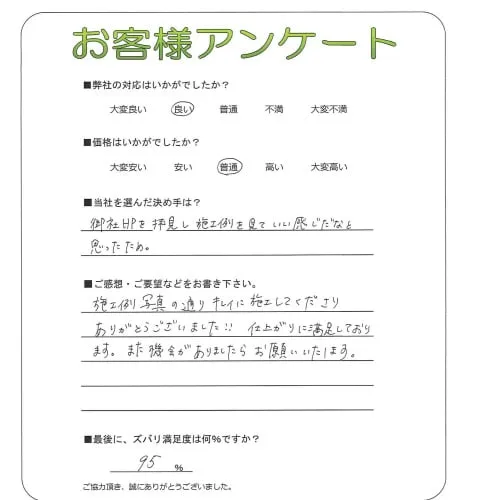 お客様アンケート
■弊社の対応はいかがでしたか？
大変良い 良い 普通 不満 大変不満
■価格はいかがでしたか？
大変安い 安い 普通 高い 大変高い
■当社を選んだ決め手は？
御社HPを拝見し施工例を見ていい感じだなと
思ったため。
■ご感想・ご要望などをお書き下さい。
施工例写真の通りキレイに施工してくださり
ありがとうございました!! 仕上がりに満足しており
ます。また機会がありましたらお願いいたします。
■最後に、ズバリ満足度は何%ですか？
95 %
ご協力頂き、誠にありがとうございました。